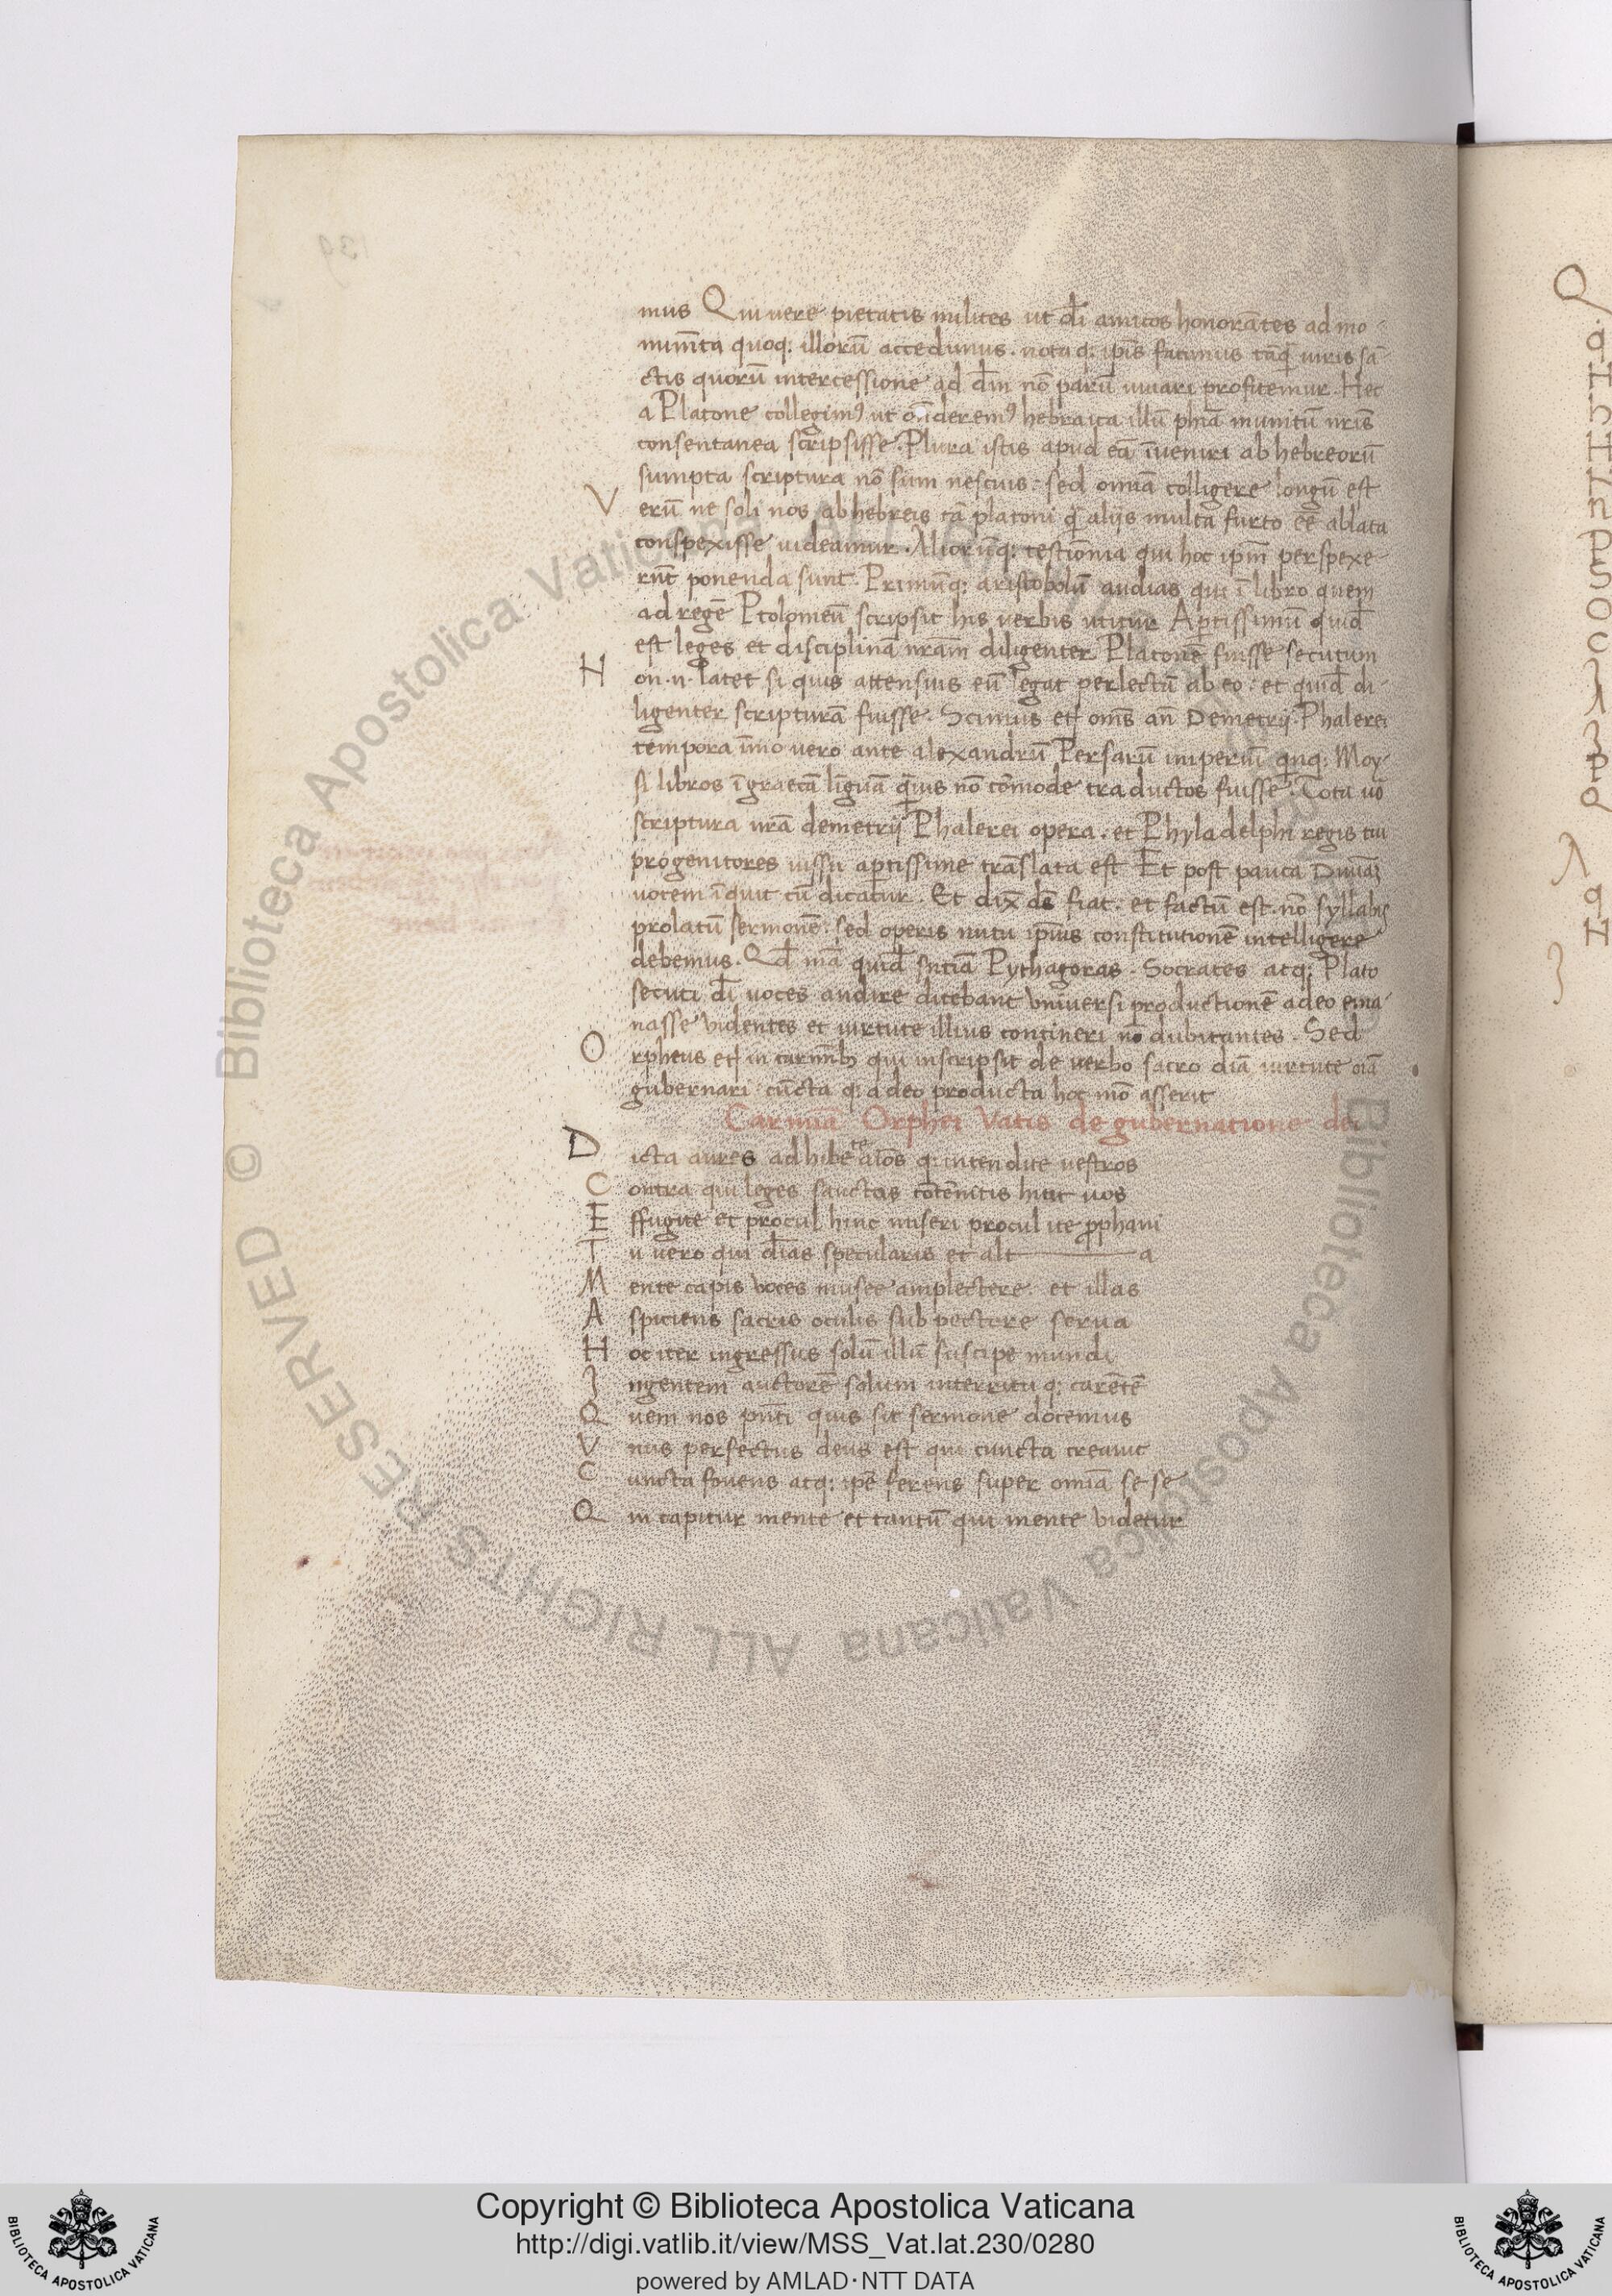 mus Qui vere pietatis milites ut dī amicos honorātes ad mo
numīta quoq; illorū accedimus. uotaq; ip̄is facimus tāq̄ uiris sā
ctis quorū intercessione ad dm̄ nō parū iuuari profitemur. Hec
a Platone collegimꝰ ut on̄deremꝰ hebraica illū phīa munitū nr̄is
consentanea scripsisse. Plura istis apud eā īueniri ab hebreorū
sumpta scriptura nō sum nescius. sed omīa colligere longū est
V erū ne soli nos ab hebreis tā platoni q̄ alijs multa furto eē ablata
conspexisse uideamur. Aliorūq; testimonia qui hoc ip̄m perspexe
rūt ponenda sunt. Primūq; aristobolū audias qui ī libro quem
ad regē Ptolomeū scripsit his verbis utitur Aptissimū quid̄
est leges et disciplinā nrām diligenter Platonē fuisse secutum
H on .n. latet si quis attensius eū legat perlectū ab eo. et quid̄ di
ligenter scripturā fuisse. Scimus et om̄s an̄ Demetrij Phalerei
tempora īmo vero ante alexandrū Persarū imperiū qnq; Moy
si libros ī graecā līguā q̄uis nō cōmode traductos fuisse. Tota uō
scriptura nrā demetrij Phalerei opera. et Phyladelphi regis tui
progenitores iussu aptissime trāslata est Et post pauca Diuiāȝ
uocem īquit cū dicatur. Et dix̄ ds̄ fiat. et factū est. nō syllabis
prolatū sermonē. sed operis nutu ip̄ius constitutionē intelligere
debemus. Qd̄ mā quid̄ sntīā Pythagoras. Socrates atq; Plato
secuti dī uoces audire dicebant vniuersi productionē adeo ema
nasse videntes et uirtute illius contineri nō dubitantes. Sed
O rpheus et in carmīb; qui inscripsit de verbo sacro diā uirtute oīa
gubernari. cūcta q; a deo producta hoc mō asserit
Carmīa Orphei Vatis de gubernatione dei
D icta aures adhibete aīos q; intendite uestros
C ontra qui leges sanctas cōtēnitis hinc uos
E ffugite et procul hinc miseri procul ite pphani
T u uero qui dīas specularis et alt a
M ente capis voces musee amplectere. et illas
A spiciens sacris oculis sub pectore serua
H oc iter ingressus solū illū suscipe mundi
I ngentem auctorē solum interrituq; carētē
Q uem nos pn̄ti quis sit sermone docemus
V nus perfectus deus est qui cuncta creauit
C uncta fouens atq; ipē ferens super omīa se se
Q ui capitur mente et tantū qui mente videtur
Biblioteca Apostolica Vaticana ALL RIGHTS RESERVED ©
Copyright © Biblioteca Apostolica Vaticana
http://digi.vatlib.it/view/MSS_Vat.lat.230/0280
powered by AMLAD·NTT DATA
BIBLIOTECA APOSTOLICA VATICANA
BIBLIOTECA APOSTOLICA VATICANA